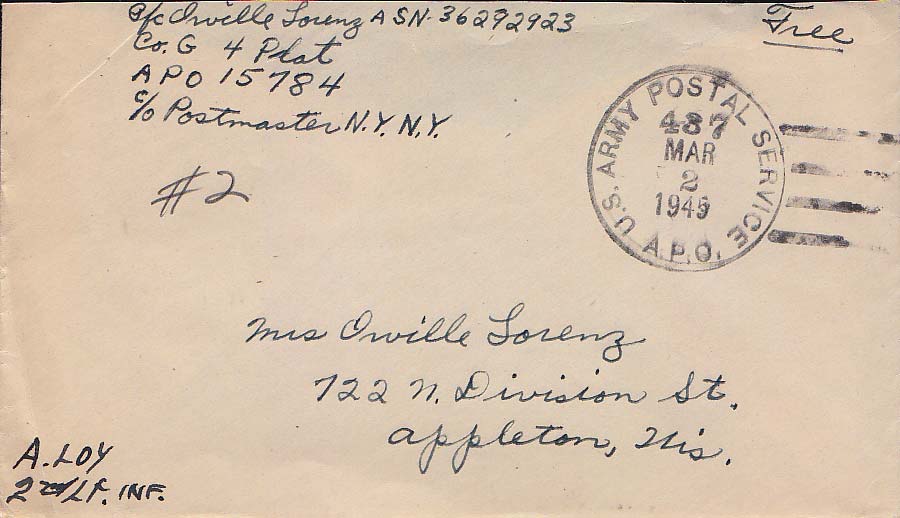 Pfc Orville Lorenz ASN-36292923
Co. G 4 Plat
APO 15784
c/o Postmaster N.Y. N.Y.
Free
U.S. ARMY POSTAL SERVICE
487
MAR
2
1945
A.P.O.
#2
Mrs Orville Lorenz
722 N. Division St.
Appleton, Wis.
A. LOY
2nd Lt. INF.